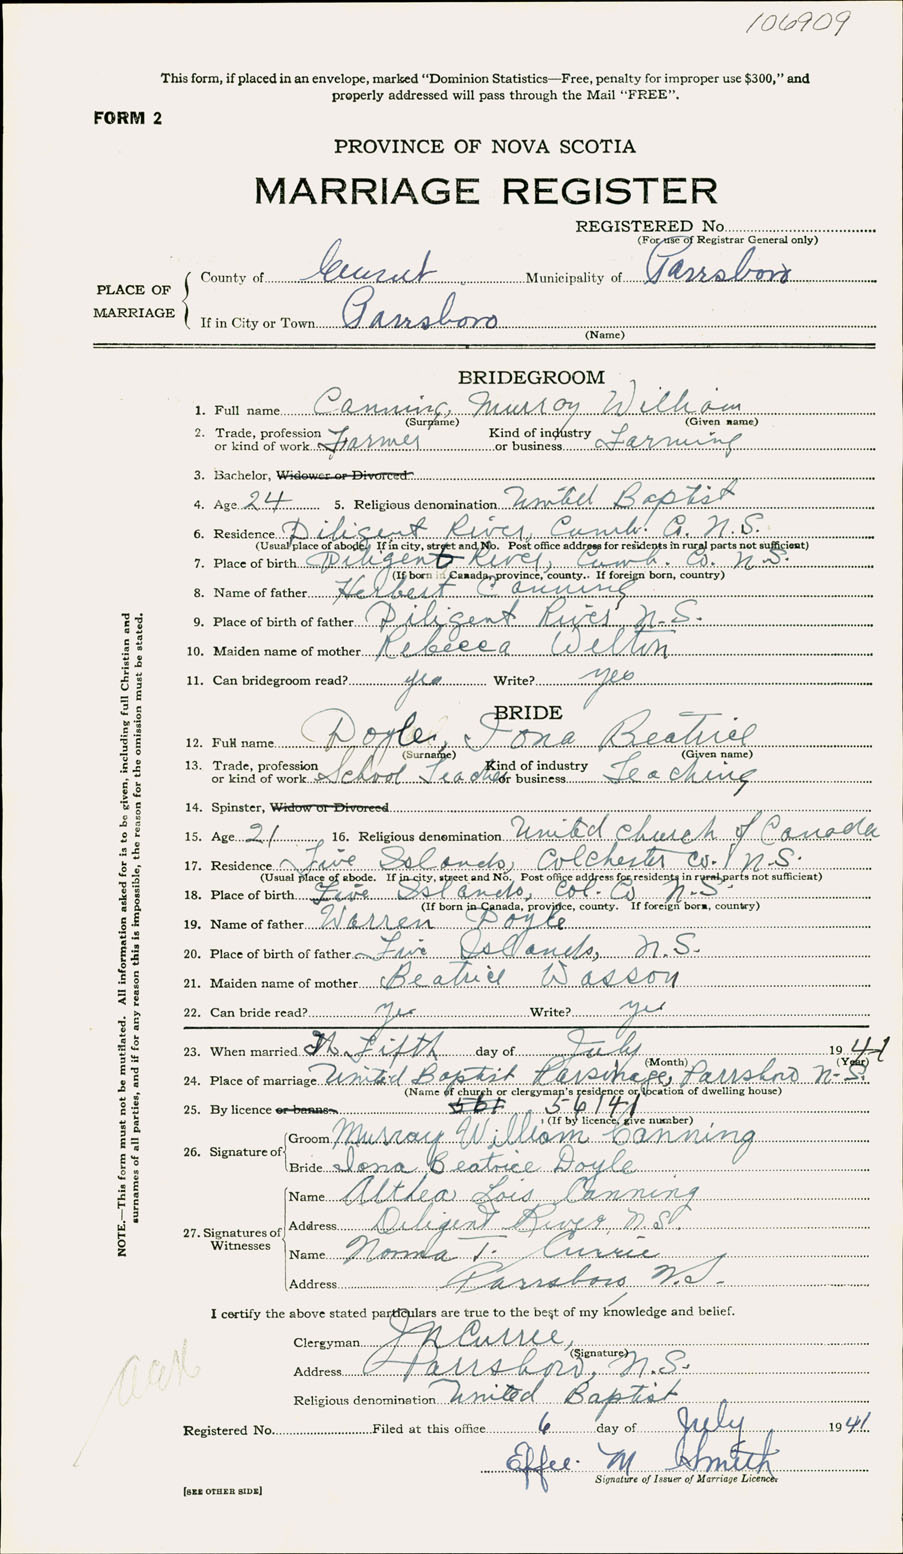 106909
This form, if placed in an envelope, marked “Dominion Statistics—Free, penalty for improper use $300,” and
properly addressed will pass through the Mail “FREE”.
FORM 2
PROVINCE OF NOVA SCOTIA
MARRIAGE REGISTER
REGISTERED No.
(For use of Registrar General only)
PLACE OF MARRIAGE
County of Municipality of Parrsboro
If in City or Town Parrsboro
(Name)
BRIDEGROOM
1. Full name Canning, Murray William
(Surname) (Given name)
2. Trade, profession or kind of work Farmer Kind of industry or business Farming
3. Bachelor, Widower or Divorced
4. Age 24 5. Religious denomination United Baptist
6. Residence Diligent River, Cumb. Co. N.S.
(Usual place of abode. If in city, street and No. Post office address for residents in rural parts not sufficient)
7. Place of birth Diligent River, Cumb. Co. N.S.
(If born in Canada, province, county. If foreign born, country)
8. Name of father Herbert Canning
9. Place of birth of father Diligent River, N.S.
10. Maiden name of mother Rebecca Welton
11. Can bridegroom read? yes Write? yes
BRIDE
12. Full name Doyle, Iona Beatrice
(Surname) (Given name)
13. Trade, profession or kind of work School Teacher Kind of industry or business Teaching
14. Spinster, Widow or Divorced
15. Age 21 16. Religious denomination United Church of Canada
17. Residence Five Islands, Colchester Co. N.S.
(Usual place of abode. If in city, street and No. Post office address for residents in rural parts not sufficient)
18. Place of birth Five Islands, Col. Co N.S.
(If born in Canada, province, county. If foreign born, country)
19. Name of father Warren Doyle
20. Place of birth of father Five Islands, N.S.
21. Maiden name of mother Beatrice Wasson
22. Can bride read? yes Write? yes
23. When married Fifth day of July 1941
(Month) (Year)
24. Place of marriage United Baptist Parsonage, Parrsboro N.S.
(Name of church or clergyman's residence or location of dwelling house)
25. By licence or banns 56141
(If by licence, give number)
26. Signature of
Groom Murray William Canning
Bride Iona Beatrice Doyle
27. Signatures of Witnesses
Name Althea Lois Canning
Address Diligent River, N.S.
Name Norma T. Currie
Address Parrsboro, N.S.
I certify the above stated particulars are true to the best of my knowledge and belief.
Clergyman Currie,
(Signature)
Address Parrsboro, N.S.
Religious denomination United Baptist
Registered No. Filed at this office 6 day of July 1941
Effie M Smith
Signature of Issuer of Marriage Licence.
[SEE OTHER SIDE]
NOTE.—This form must not be mutilated. All information asked for is to be given, including full Christian and
surnames of all parties, and if for any reason this is impossible, the reason for the omission must be stated.